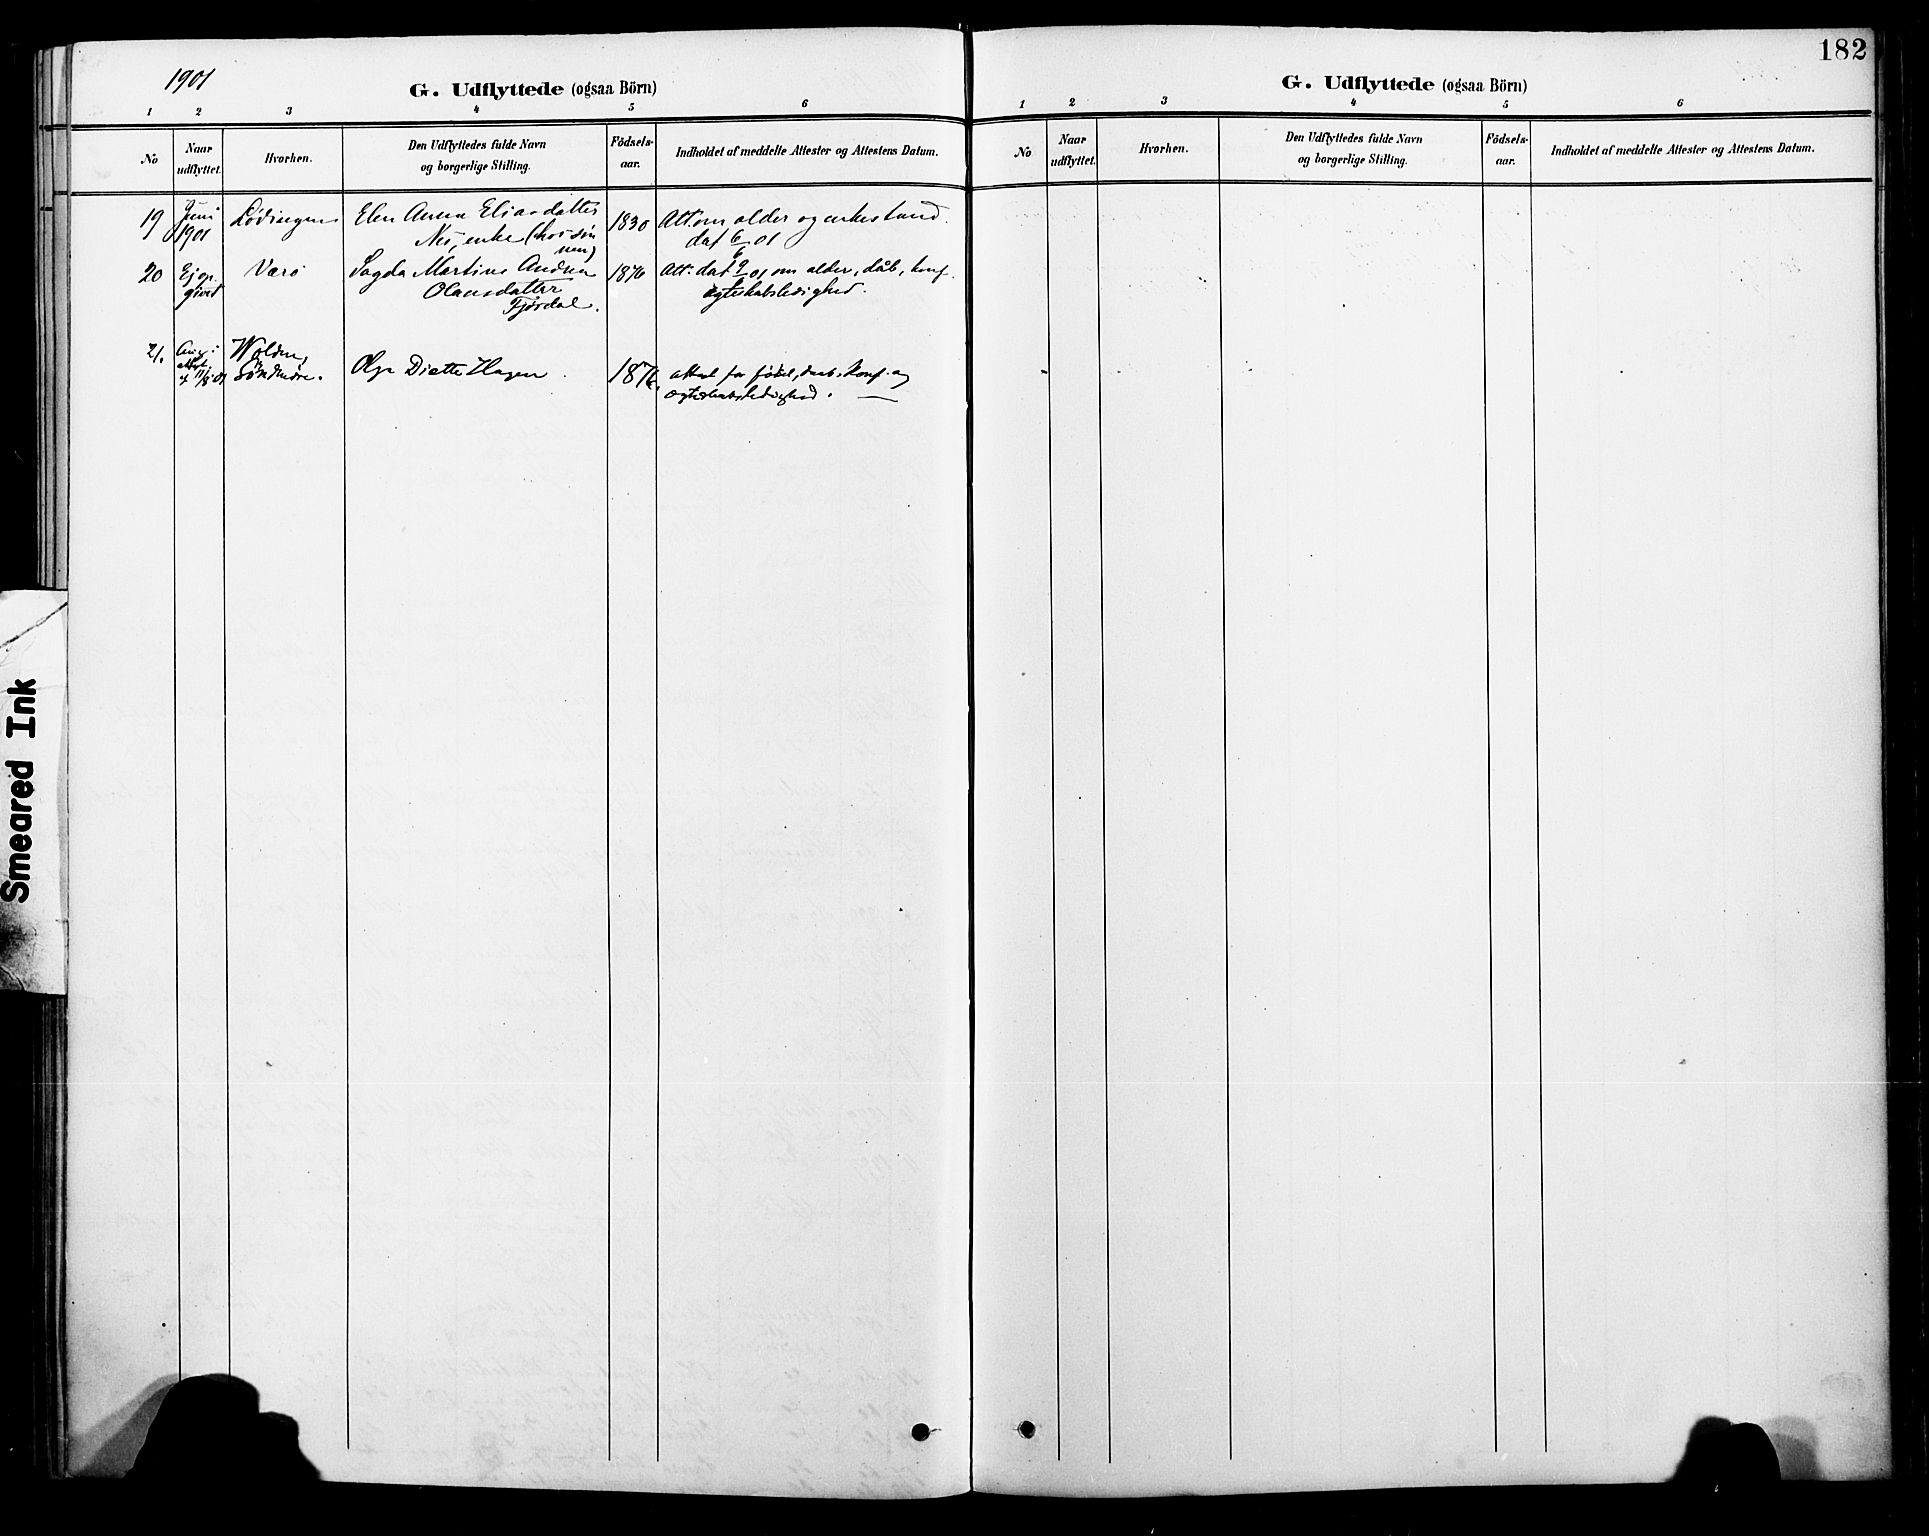 182
1901
G. Udflyttede (ogsaa Börn)
1 2 3 4 5 6
No
Naar udflyttet.
Hvorhen.
Den Udflyttedes fulde Navn
og borgerlige Stilling.
Födsels-
aar.
Indholdet af meddelte Attester og Attestens Datum.
19 Juni 1901 Lødingen Elen Anna Eliasdatter 1830 Att. om alder og enkestand.
Nes, enke (hos søn
nen)
dat 6/6 01
20 Ej op-
givet
Værø
Martine Andrea
Olausdatter
Fjørdal.
1876
Att. dat 9/ 01 om alder, dåb, konf.
ægteskabsledighed.
21. Aug:
11/8 01
Wolden,
Søndmøre.
Olga Hagen
1876
attest for fødsel, daab, konf. og
ægteskabsledighed.
G. Udflyttede (ogsaa Börn)
1 2 3 4 5 6
No
Naar
udflyttet.
Hvorhen.
Den Udflyttedes fulde Navn
og borgerlige Stilling.
Födsels-
aar.
Indholdet af meddelte Attester og Attestens Datum.
Smeared Ink